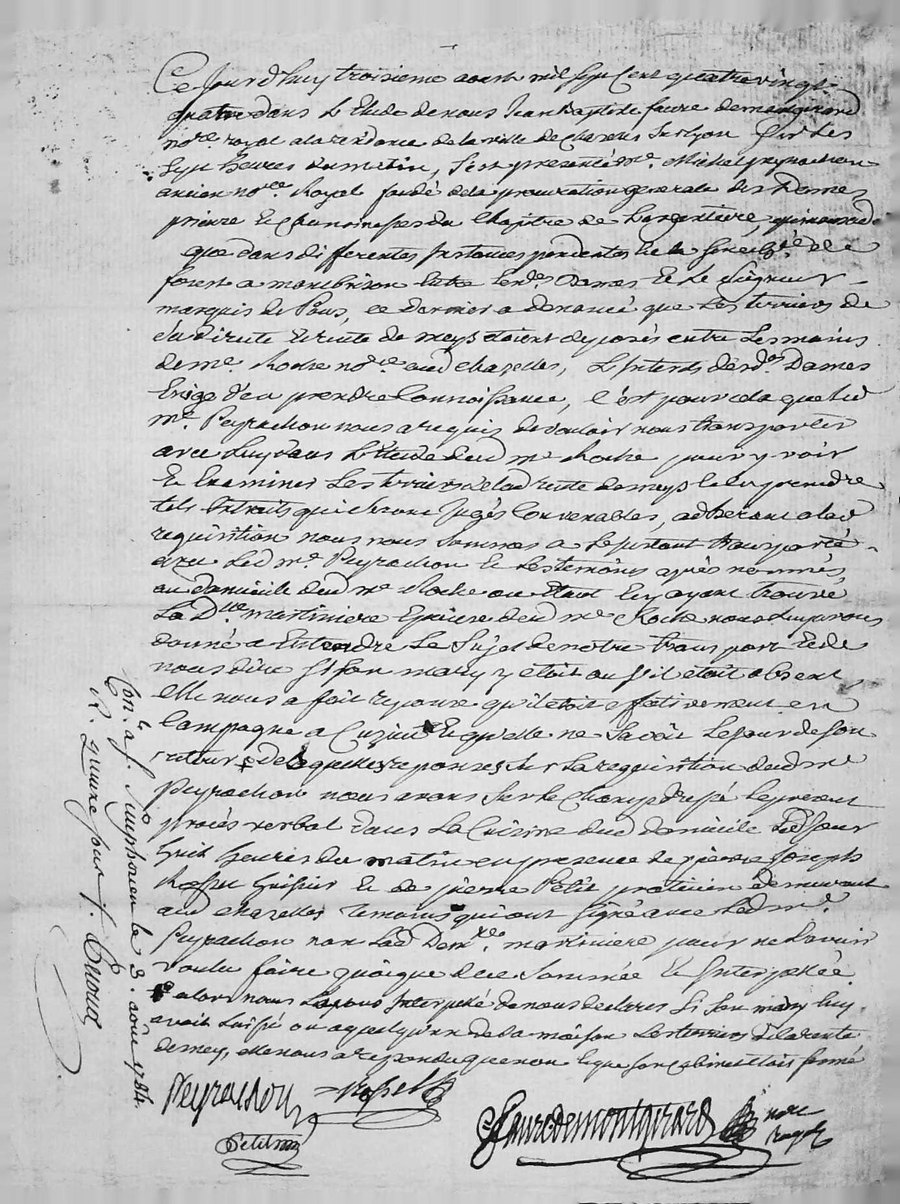 Ce Jourd'huy troisieme aoust mil sept Cent quatre vingt
quatre dans L'Etude de nous Jean Baptiste faure de montgirard
no.re royal a la residence de la ville de Chazelles Sur Lyon Sur Les
Sept heures du matin, S'est presenté m.e Michel peyrachon
ancien no.re Royal fondé de la procuration generale des Dames
prieure et Chanoinesses du Chapitre de Largentiere,
que dans differentes Instances pendantes En la Senech.ée de
forest a montbrison Entre Lesd.es Dames Et Le Seigneur
marquis de Pons, ce Dernier a denoncé que Les terriers de
Sa directe de meys étoient deposés entre Les mains
de m.e Roche no.re aud Chazelles, L'Interet desd.es Dames
Exige d'en prendre Connoissance, C'est pour cela que led
m.e Peyrachon nous a requis de vouloir nous transporter
avec Luy dans L'Etude dud m.e Roche pour y voir
Et Examiner Les terriers de lad rente de meys Et en prendre
tels Extraits qui Seront Jugés Convenables, adherant a lad
requisition nous nous Sommes a L'instant transporté
avec Led m.e Peyrachon Et Les temoins après nommés
au domicile dud m.e Roche ou Etant Et y ayant trouvé
La D.lle martiniere Epouse dud m.e Roche nous Luy avons
donné a Entendre Le Sujet de notre transport Et de
nous dire Si Son mary y étoit ou S'il étoit absent
elle nous a fait reponse qu'il étoit effectivement en
Campagne a Et qu'elle ne Savoit Le Jour de Son
retour De laquelle reponse Sur La requisition dud m.e
Peyrachon nous avons Sur le Champ dressé Le present
procès verbal dans La Cuisine dud domicile Led Jour
huit heures du matin en presence de pierre Joseph
huissier Et de pierre Petit praticien demeurant
aud chazelles temoins qui ont Signé avec Led m.e
Peyrachon non Lad Dem.lle martiniere pour ne L'avoir
voulu faire quoique de ce Sommée Et Interpellée
alors nous L'avons Interpellé de nous declarer Si Son mary luy
avoit Laissé ou a quelqu'un de la maison Les terriers de la rente
de mey, elle nous a repondu que non Et que Son Cabinet étoit fermé
Peyrachon
Petit
faure de montgirard no.re royal
Con.lé a S. Simphorien le 3. août 1784.
R. quinze sous